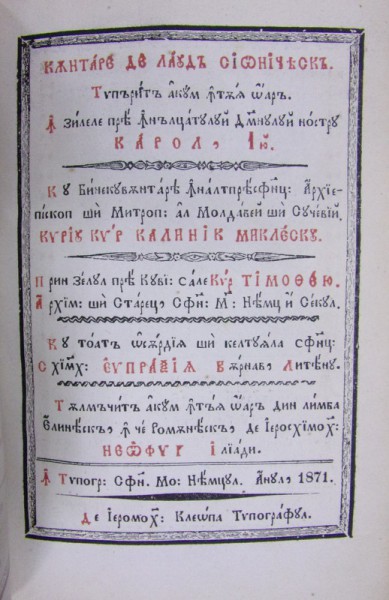 Кѫнтаре де лаудъ сіѡническъ.
Тупърит акум ꙟтѫя ѿаръ.
Ꙟ зилеле пре ꙟнълцатулуй Дмнулуй ностру
КАРОЛ, Iю.
Ку Бинекувѫнтаре ꙟналтпресфинц: Архіе-
піскоп ши Митроп: ал Молдавей ши Сучевій,
КУРІУ КУР КАЛИНІК МИКЛЕСКУ.
Прин зелул пре Куві: сале Кур ТІМОѲЕЮ.
Архім: ши Старец, Сфин. М: Нѣмц й Секул.
Ку тоатъ ѡсѫрдія ши келтуяла сфинц:
Схімх: ЕУПРАѮІЯ Вѫрнавъ Литѣну.
Тълмъчит акум ꙟтѫя ѿаръ дин лимба
Елинѣскъ, ꙟ че Ромѫнѣскъ де Іеросхімох:
НЕѠФУТ Іліади.
Ꙟ Тупогр: Сфин. Мо: Нѣмцул. Анул, 1871.
Де Іеромох: Клеѡпа Тупографул.